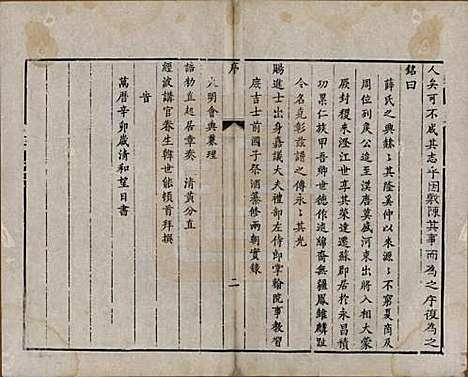 人矣可不成其志乎因敷陳其事而為之序復為之
銘曰
薛氏之興錄
其隆奚仲以來源
不窮夏商及
周位列侯公迨至漢唐莫盛河東出將入相大蒙
厥封穆來澄江世享其榮達遷蘇郡居於永昌積
功累仁族甲吾鄉世德作述綿裔無疆鳳雛麟趾
今名克彰茲譜之傳永
其光
賜進士出身嘉議大夫禮部左侍郎掌翰院事教習
庶吉士前國子祭酒纂修兩朝實錄
序
二
大明會典纂理
誥勅直起居章奏
清黃分直
經筵講官眷生韓世能頓首拜撰
旹
萬曆辛卯歲清和望日書